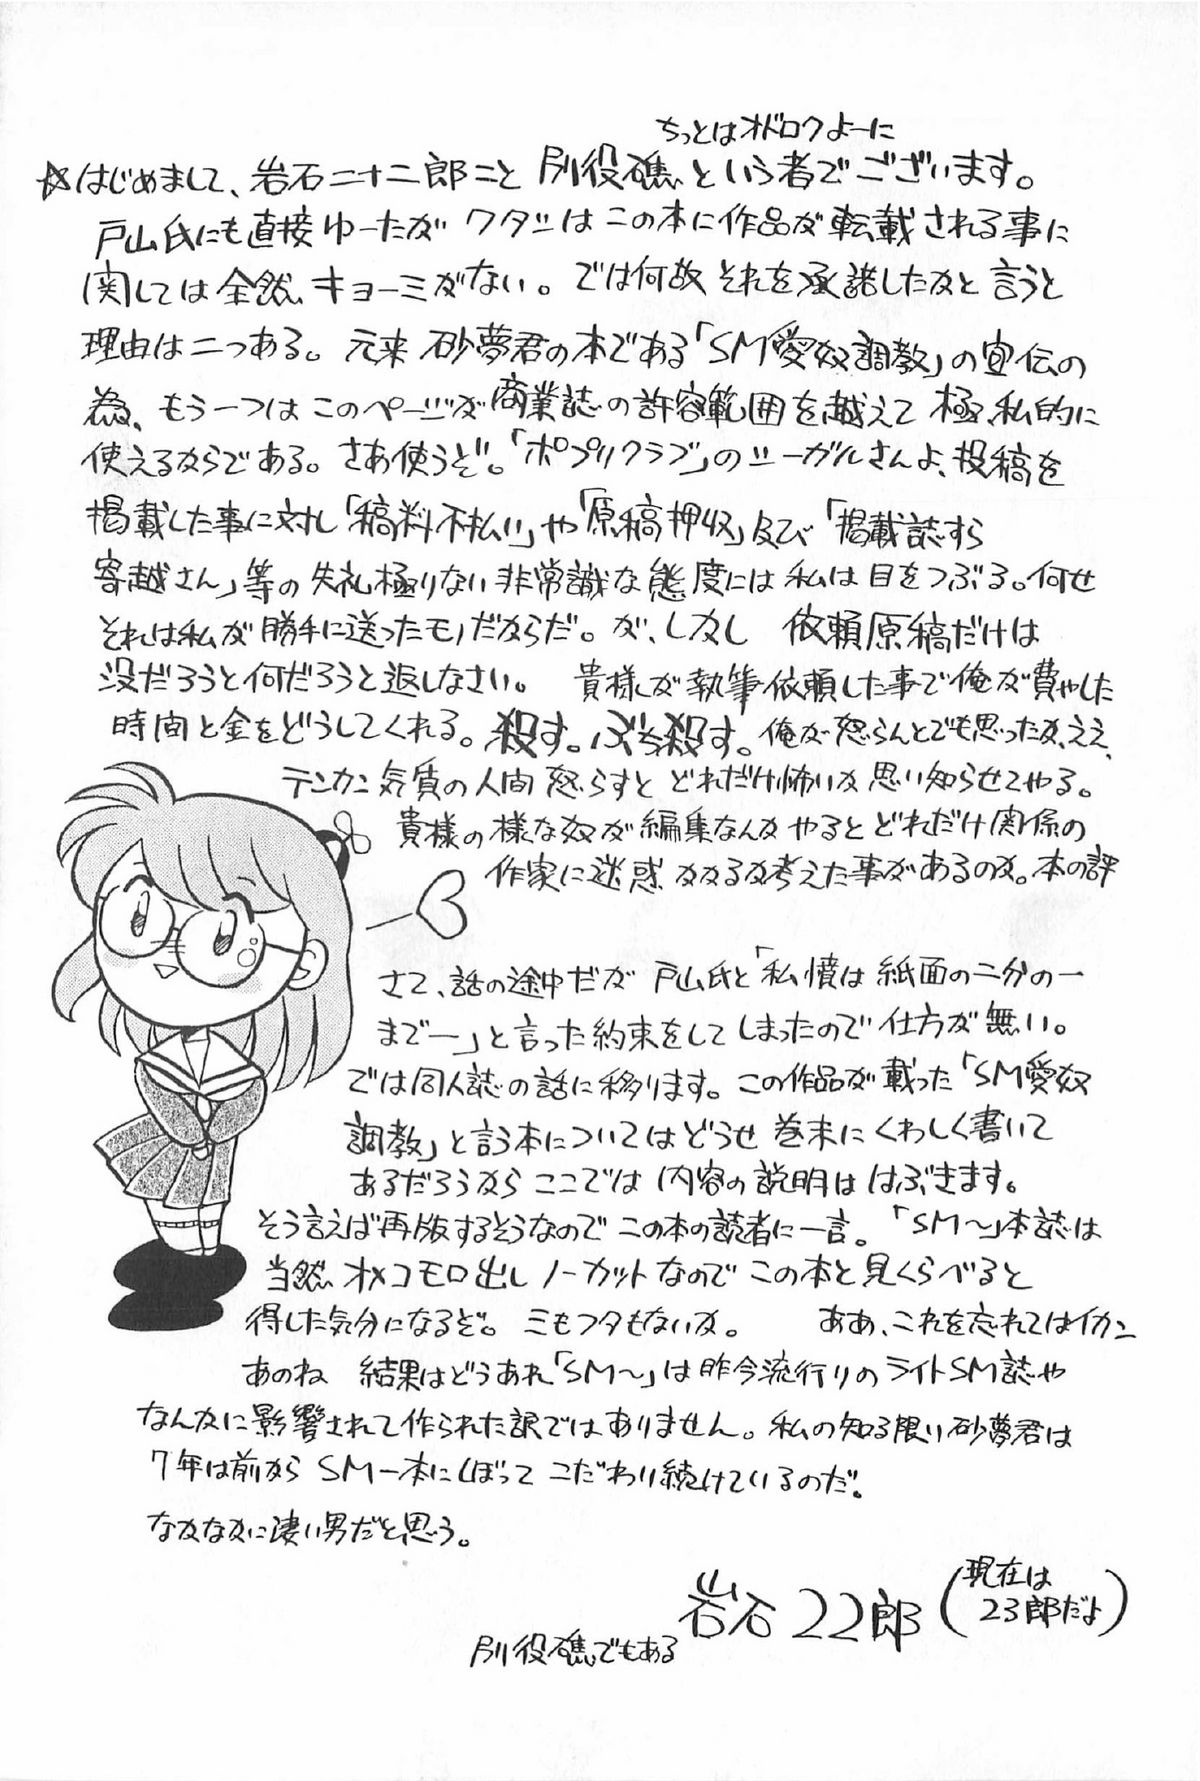 ちっとはオドロクよーに
☆はじめまして、岩石二十二郎こと 別役礁という者でございます。
戸山氏にも直接ゆーたが ワタシはこの本に作品が転載される事に
関しては全然キョーミがない。では何故それを承諾したかと言うと
理由は二つある。元来 砂夢君の本である「SM愛奴調教」の宣伝の
為、もう一つはこのページが商業誌の許容範囲を越えて 極私的に
使えるからである。さあ使うぞ。「ポプリクラブ」のシーガルさんよ、投稿を
掲載した事に対し「稿料不払い」や「原稿押収」及び「掲載誌すら
寄越さん」等の失礼極りない非常識な態度には私は目をつぶる。何せ
それは私が勝手に送ったモノだからだ。が、しかし 依頼原稿だけは
没だろうと何だろうと返しなさい。 貴様が執筆依頼した事で俺が費やした
時間と金をどうしてくれる。殺す。ぶち殺す。俺が怒らんとでも思ったか、ええ、
テンカン気質の人間怒らすと どれだけ怖いか思い知らせてやる。
貴様の様な奴が編集なんかやるとどれだけ関係の
作家に迷惑かかるか考えた事があるのか。本の評
さて、話の途中だが 戸山氏と「私憤は紙面の二分の一
まで―」と言った約束をしてしまったので仕方が無い。
では同人誌の話に移ります。この作品が載った「SM愛奴
調教」と言う本についてはどうせ巻末にくわしく書いて
あるだろうから ここでは内容の説明は はぶきます。
そう言えば再版するそうなのでこの本の読者に一言。「SM〜」本誌は
当然オメコモロ出しノーカットなのでこの本と見くらべると
得した気分になるぞ。ミもフタもないか。 ああ、これを忘れてはイカン
あのね 結果はどうあれ「SM〜」は昨今流行りのライトSM誌や
なんかに影響されて作られた訳ではありません。私の知る限り砂夢君は
7年は前から SM一本にしぼってこだわり続けているのだ。
なかなかに凄い男だと思う。
岩石22郎(現在は
23郎だよ)
別役礁でもある